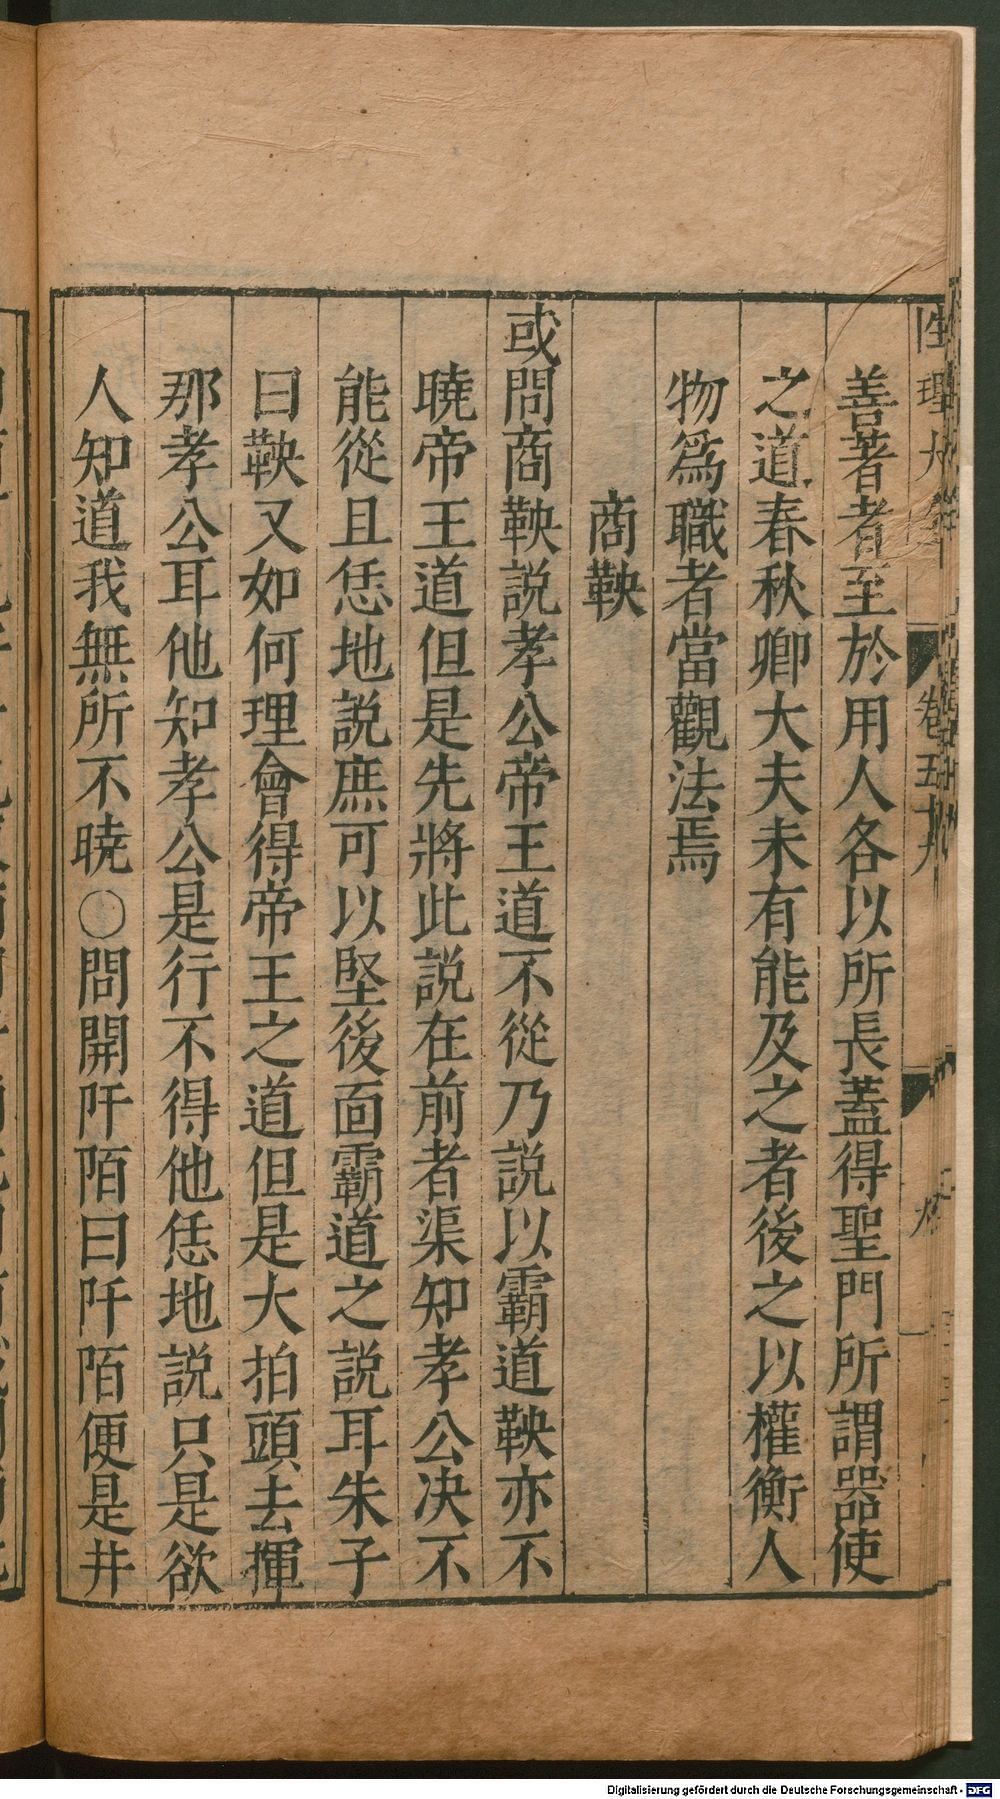 性理大全 卷五十九
善著者至於用人各以所長蓋得聖門所謂器使
之道春秋卿大夫未有能及之者後之以權衡人
物爲職者當觀法焉
商鞅
或問商鞅說孝公帝王道不從乃說以霸道鞅亦不
曉帝王道但是先將此說在前者渠知孝公决不
能從且恁地說庶可以堅後面霸道之說耳朱子
曰鞅又如何理會得帝王之道但是大拍頭去揮
那孝公耳他知孝公是行不得他恁地說只是欲
人知道我無所不曉○問開阡陌曰阡陌便是井
Digitalisierung gefördert durch die Deutsche Forschungsgemeinschaft - DFG